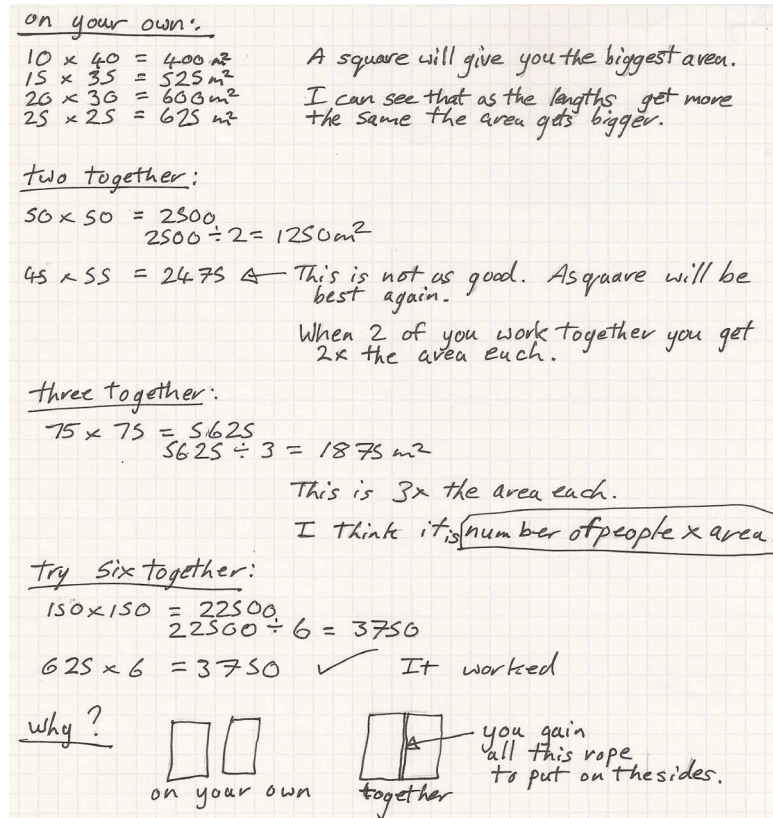 on your own:
10 x 40 = 400 m²
15 x 35 = 525 m²
20 x 30 = 600 m²
25 x 25 = 625 m²
A square will give you the biggest area.
I can see that as the lengths get more
the same the area gets bigger.
two together:
50 x 50 = 2500
2500 ÷ 2 = 1250 m²
45 x 55 = 2475
This is not as good. A square will be
best again.
When 2 of you work together you get
2x the area each.
three together:
75 x 75 = 5625
5625 ÷ 3 = 1875 m²
This is 3x the area each.
I think it is number of people x area
try six together:
150 x 150 = 22500
22500 ÷ 6 = 3750
625 x 6 = 3750 ✓ It worked
why?
on your own
together
you gain
all this rope
to put on the sides.